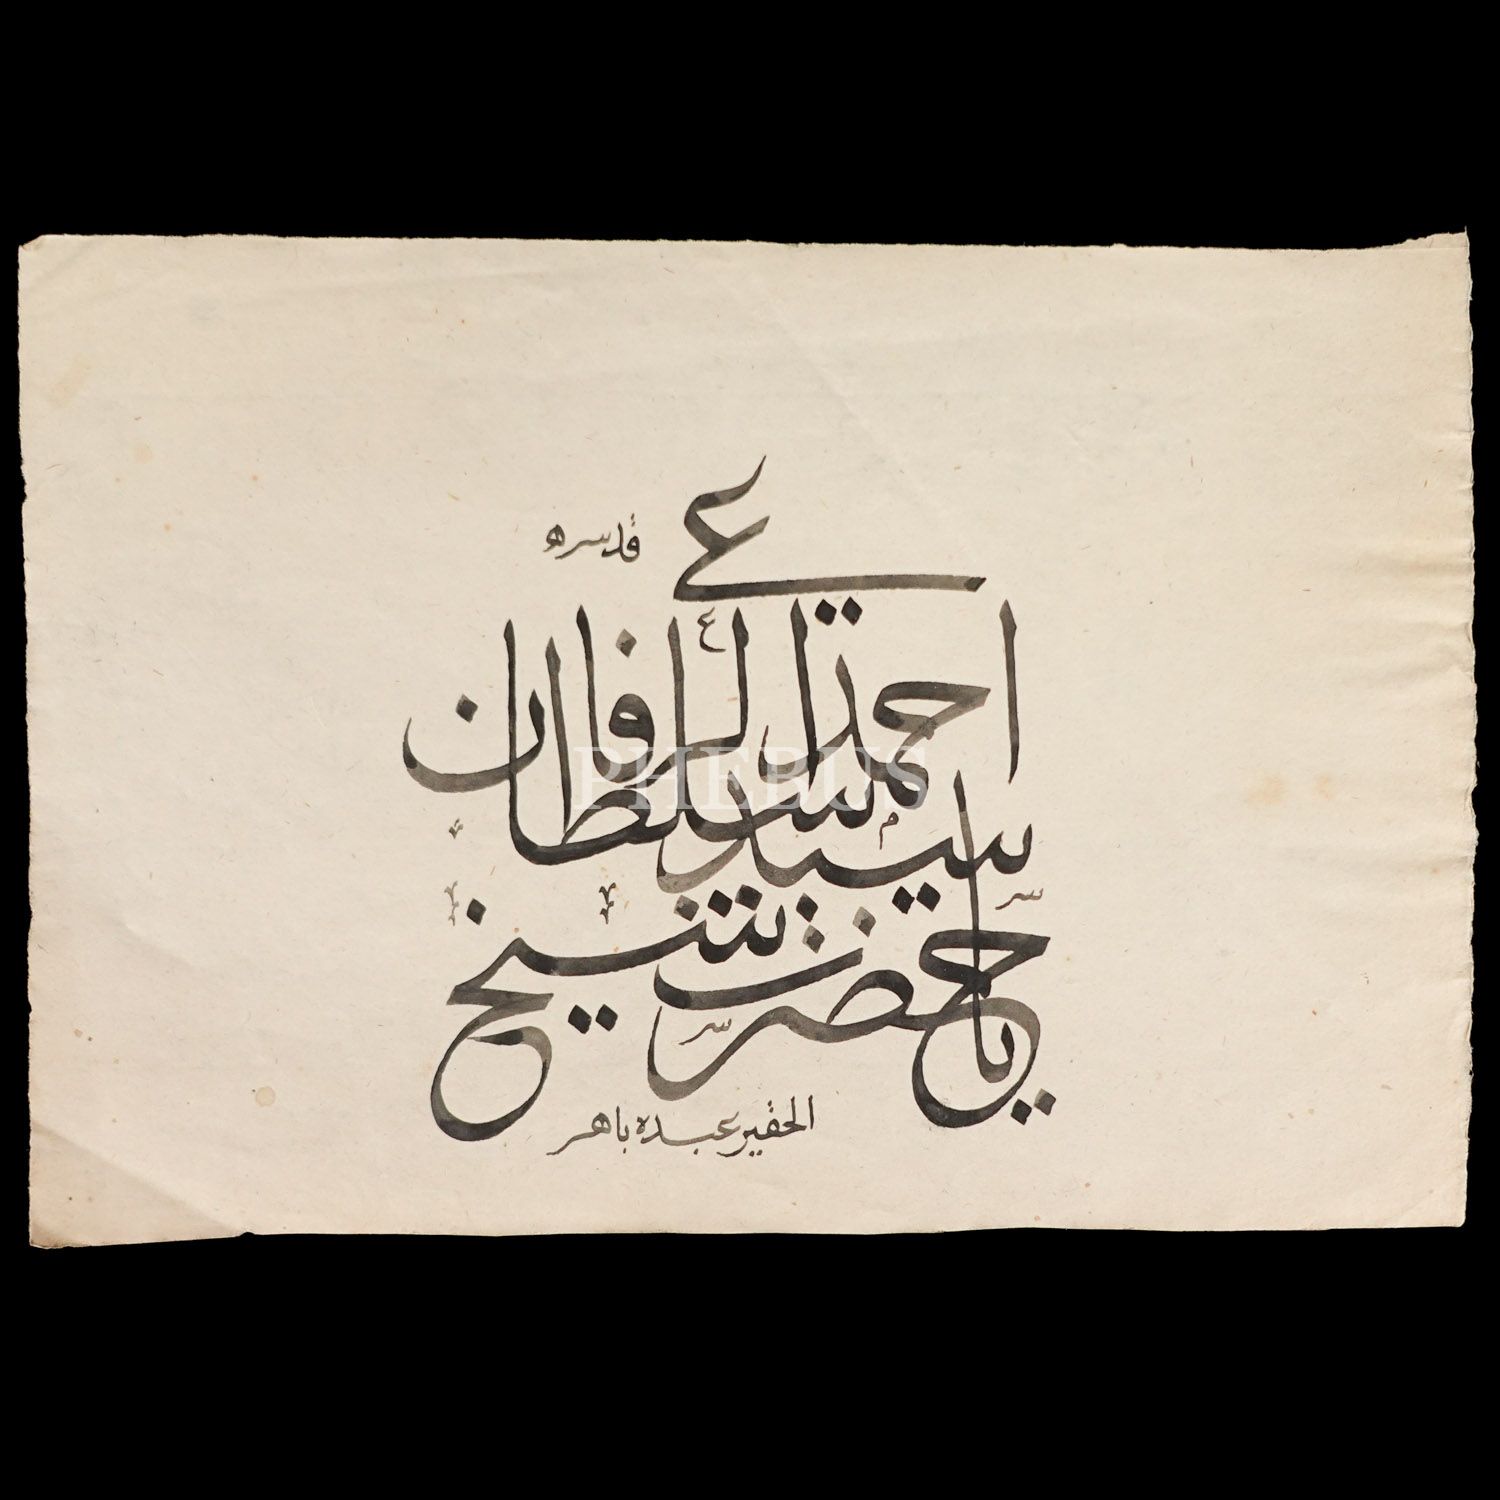 يا حضرت شيخ
سيد سلطان
احمد الرفاعي
قدسره
الحقير عبده باهر
PHEBUS